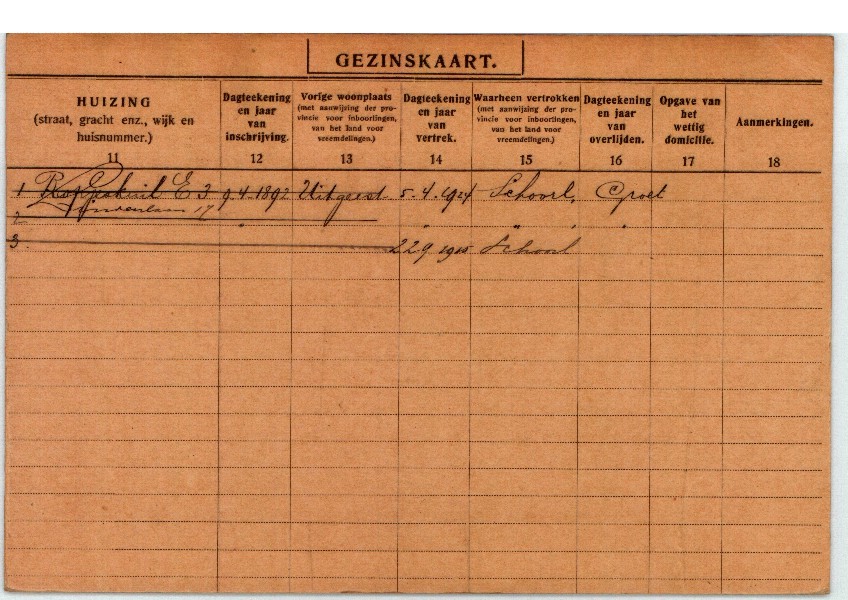 GEZINSKAART.
HUIZING
(straat, gracht enz., wijk en
huisnummer.)
11
Dagteekening
en jaar
van
inschrijving.
12
Vorige woonplaats
(met aanwijzing der pro-
vincie voor inboorlingen,
van het land voor
vreemdelingen.)
13
Dagteekening
en jaar
van
vertrek.
14
Waarheen vertrokken
(met aanwijzing der pro-
vincie voor inboorlingen,
van het land voor
vreemdelingen.)
15
Dagteekening
en jaar
van
overlijden.
16
Opgave van
het
wettig
domicilie.
17
Aanmerkingen.
18
1 E 3 9.4.1892 Uitgeest 5.4.1924 Schoorl, Groet
17
2 " " " "
3. 22 9 1915 Schoorl